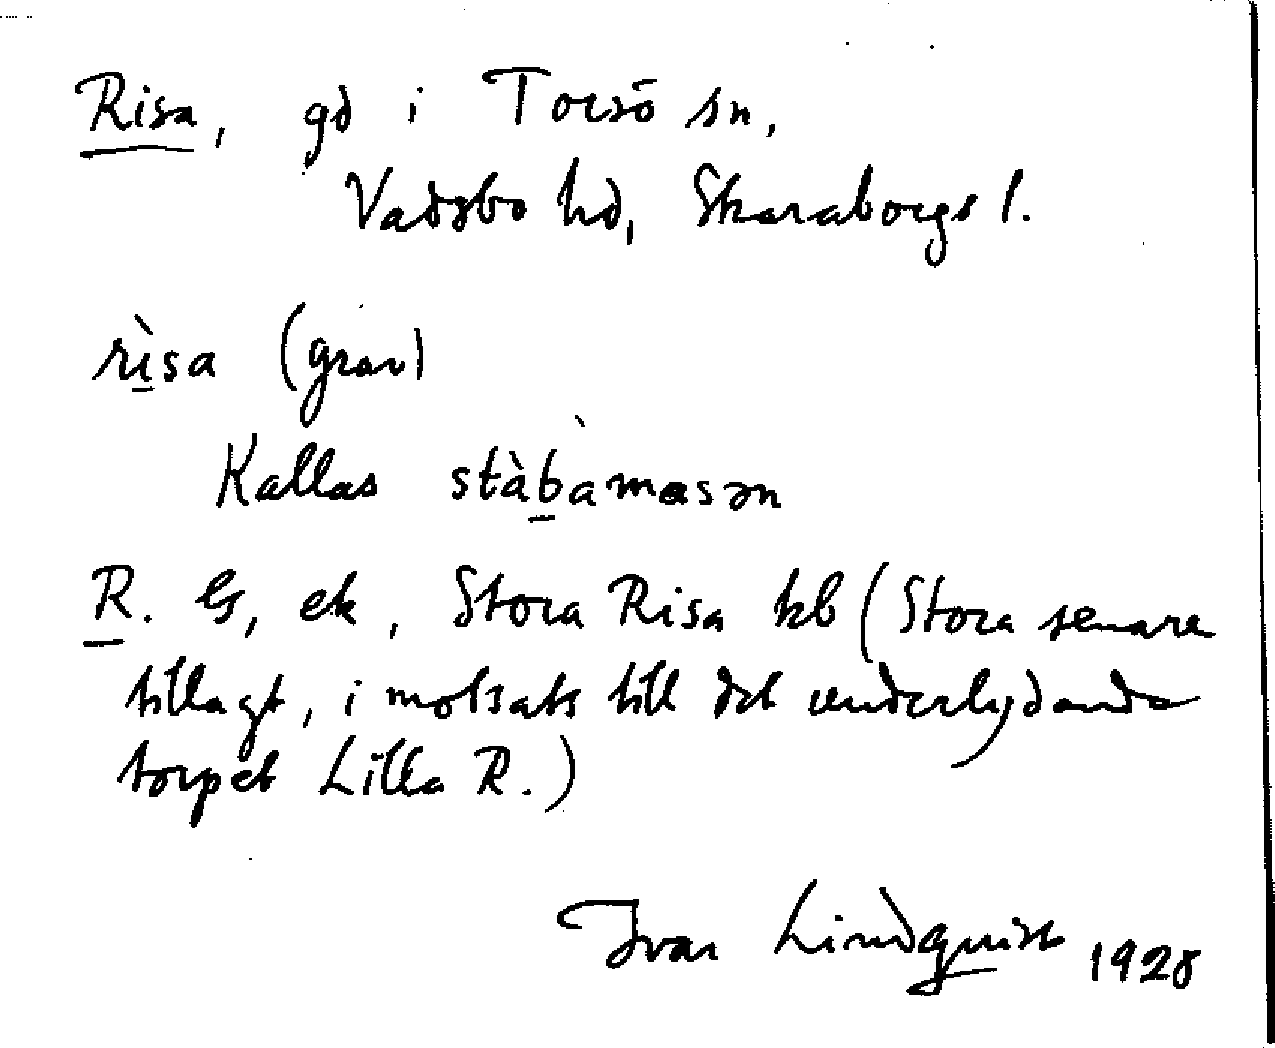 Risa, gd i Torsö sn,
Vadsbo hd, Skaraborgs l.
rìsa (grav)
Kallas stàbàmasən
R. G, ek, Stora Risa kb (Stora senare
tillagt, i motsats till det underlydande
torpet Lilla R.)
Ivar Lindquist 1928